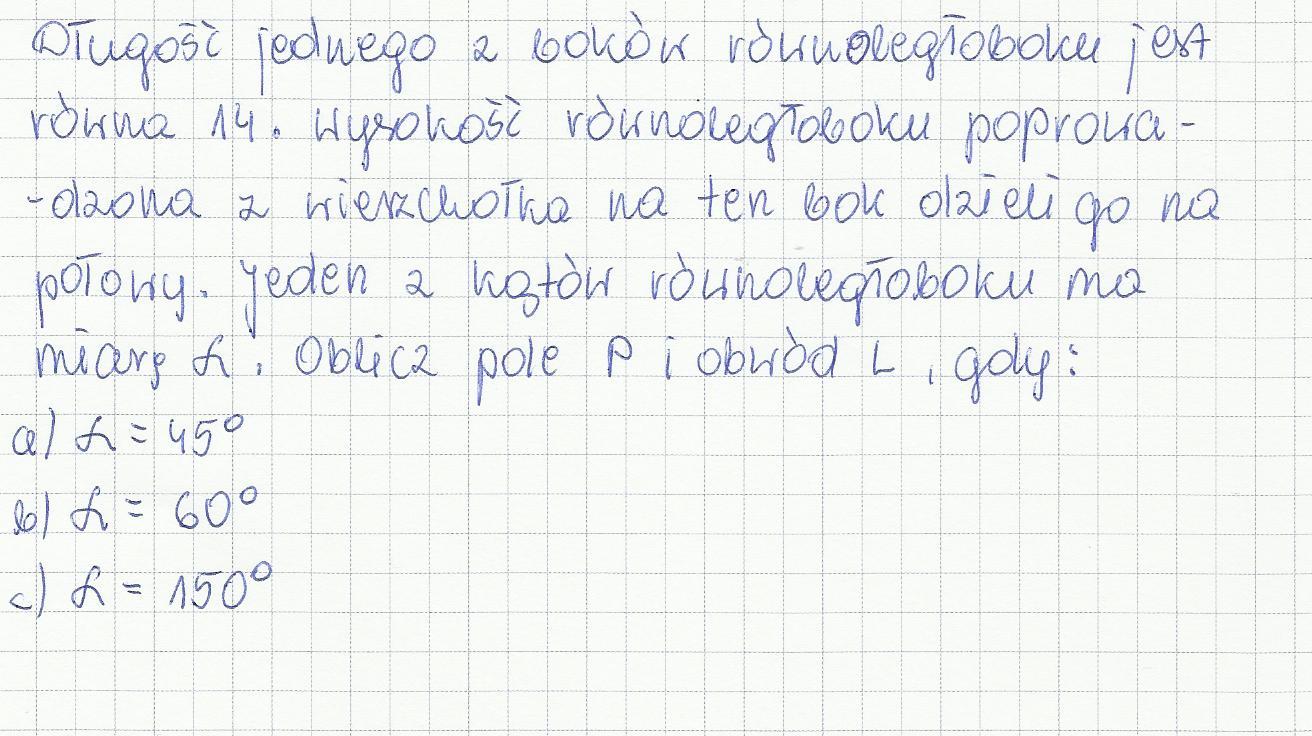 Długość jednego z boków równoległoboku jest
równa 14. Wysokość równoległoboku poprowa-
-dzona z wierzchołka na ten bok dzieli go na
połowy. Jeden z kątów równoległoboku ma
miarę α. Oblicz pole P i obwód L, gdy:
a) α = 45°
b) α = 60°
c) α = 150°